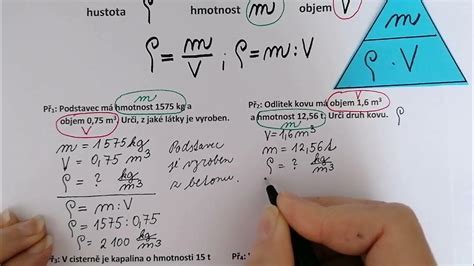 hustota ρ hmotnost m objem V
ρ = m/V ; ρ = m : V
m
ρ · V
m
Př₁: Podstavec má hmotnost 1575 kg a
objem 0,75 m³. Urči, z jaké látky je vyroben.
V
m = 1575 kg
V = 0,75 m³
ρ = ? kg/m³
ρ = m : V
ρ = 1575 : 0,75
ρ = 2100 kg/m³
Podstavec
je vyroben
z betonu.
V
Př₂: Odlitek kovu má objem 1,6 m³
a hmotnost 12,56 t. Urči druh kovu. ρ
m
V = 1,6 m³
m = 12,56 t
ρ = ? kg/m³
Př₃: V cisterně je kapalina o hmotnosti 15 t
Př₄: